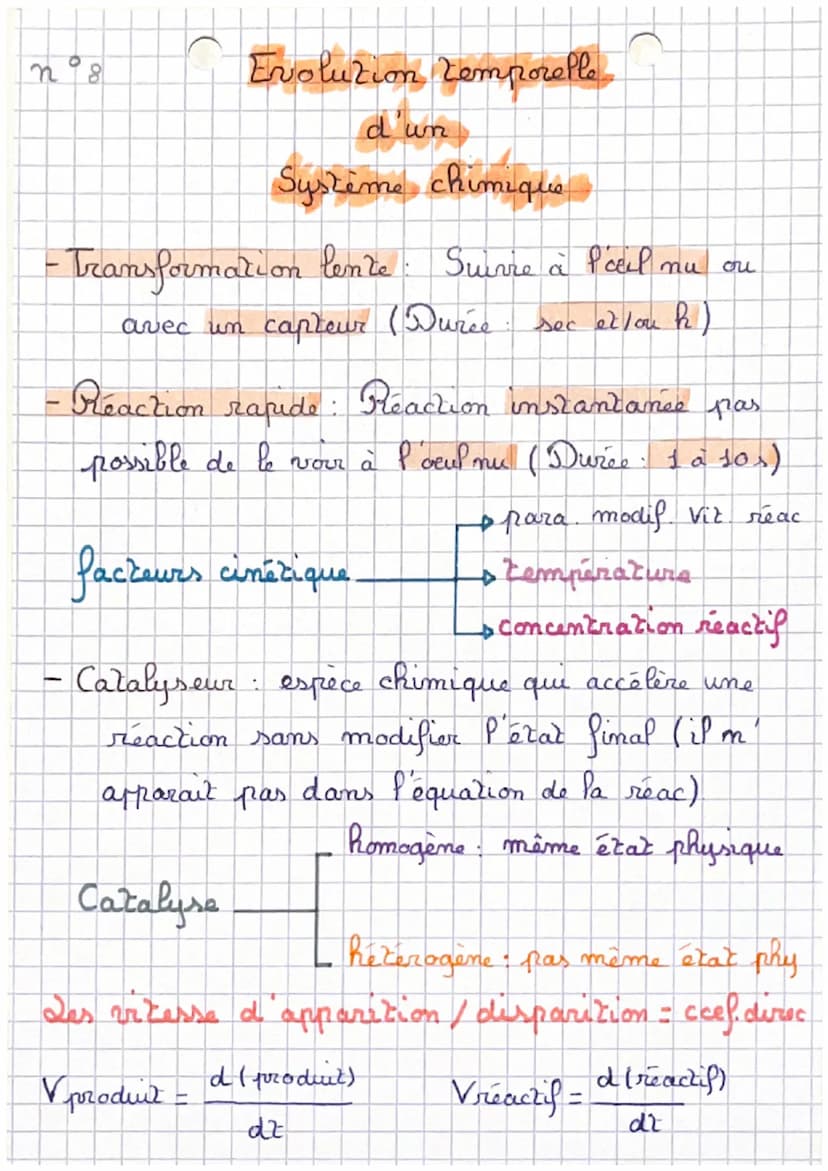 n°8
Evolution temporelle
d'un
Système chimique
- Transformation lente : Suivie à l'œil nu ou
avec un capteur (Durée : sec et/ou h)
- Réaction rapide : Réaction instantanée pas
possible de le voir à l'oeul nu (Durée : 1 à 10s)
para. modif. Vit. réac
facteurs cinétique
température
concentration réactif
- Catalyseur : espèce chimique qui accélère une
réaction sans modifier l'état final (il n'
apparait pas dans l'équation de la réac).
homogène : même état physique
Catalyse
hétérogène : pas même état phy
Les vitesse d'apparition / disparition = coef. direc
V produit = d(produit) / dt
V réactif = d(réactif) / dt